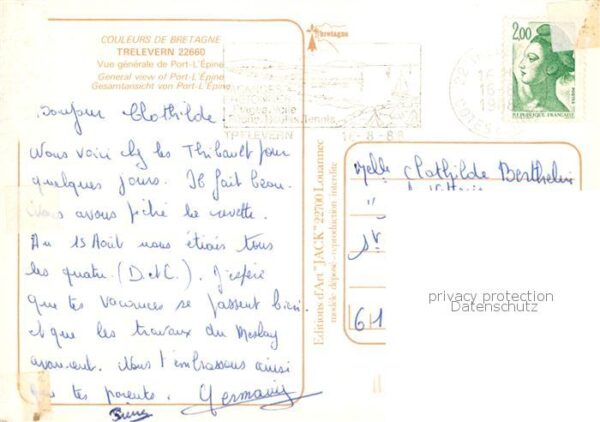 COULEURS DE BRETAGNE
TRELEVERN 22660
Vue générale de Port-L'Épine
General view of Port-L'Épine
Gesamtansicht von Port-L'Épine
bretagne
TRELEVERN
16-8-88
2,00
REPUBLIQUE FRANÇAISE
Bonjour Clothilde
Nous voici chez les Thibault pour
quelques jours. Il fait beau.
Nous avons pêché la crevette.
Au 15 Août nous étions tous
les quatre (D. et C.). J'espère
que tes vacances se passent bien
et que les travaux du Meslay
avancent. Nous t'embrassons ainsi
que tes parents. Germaine
Pierre
Editions d'Art "JACK" 22700 Louannec
modèle déposé - reproduction interdite
Melle Clothilde Berthelin
61
privacy protection
Datenschutz